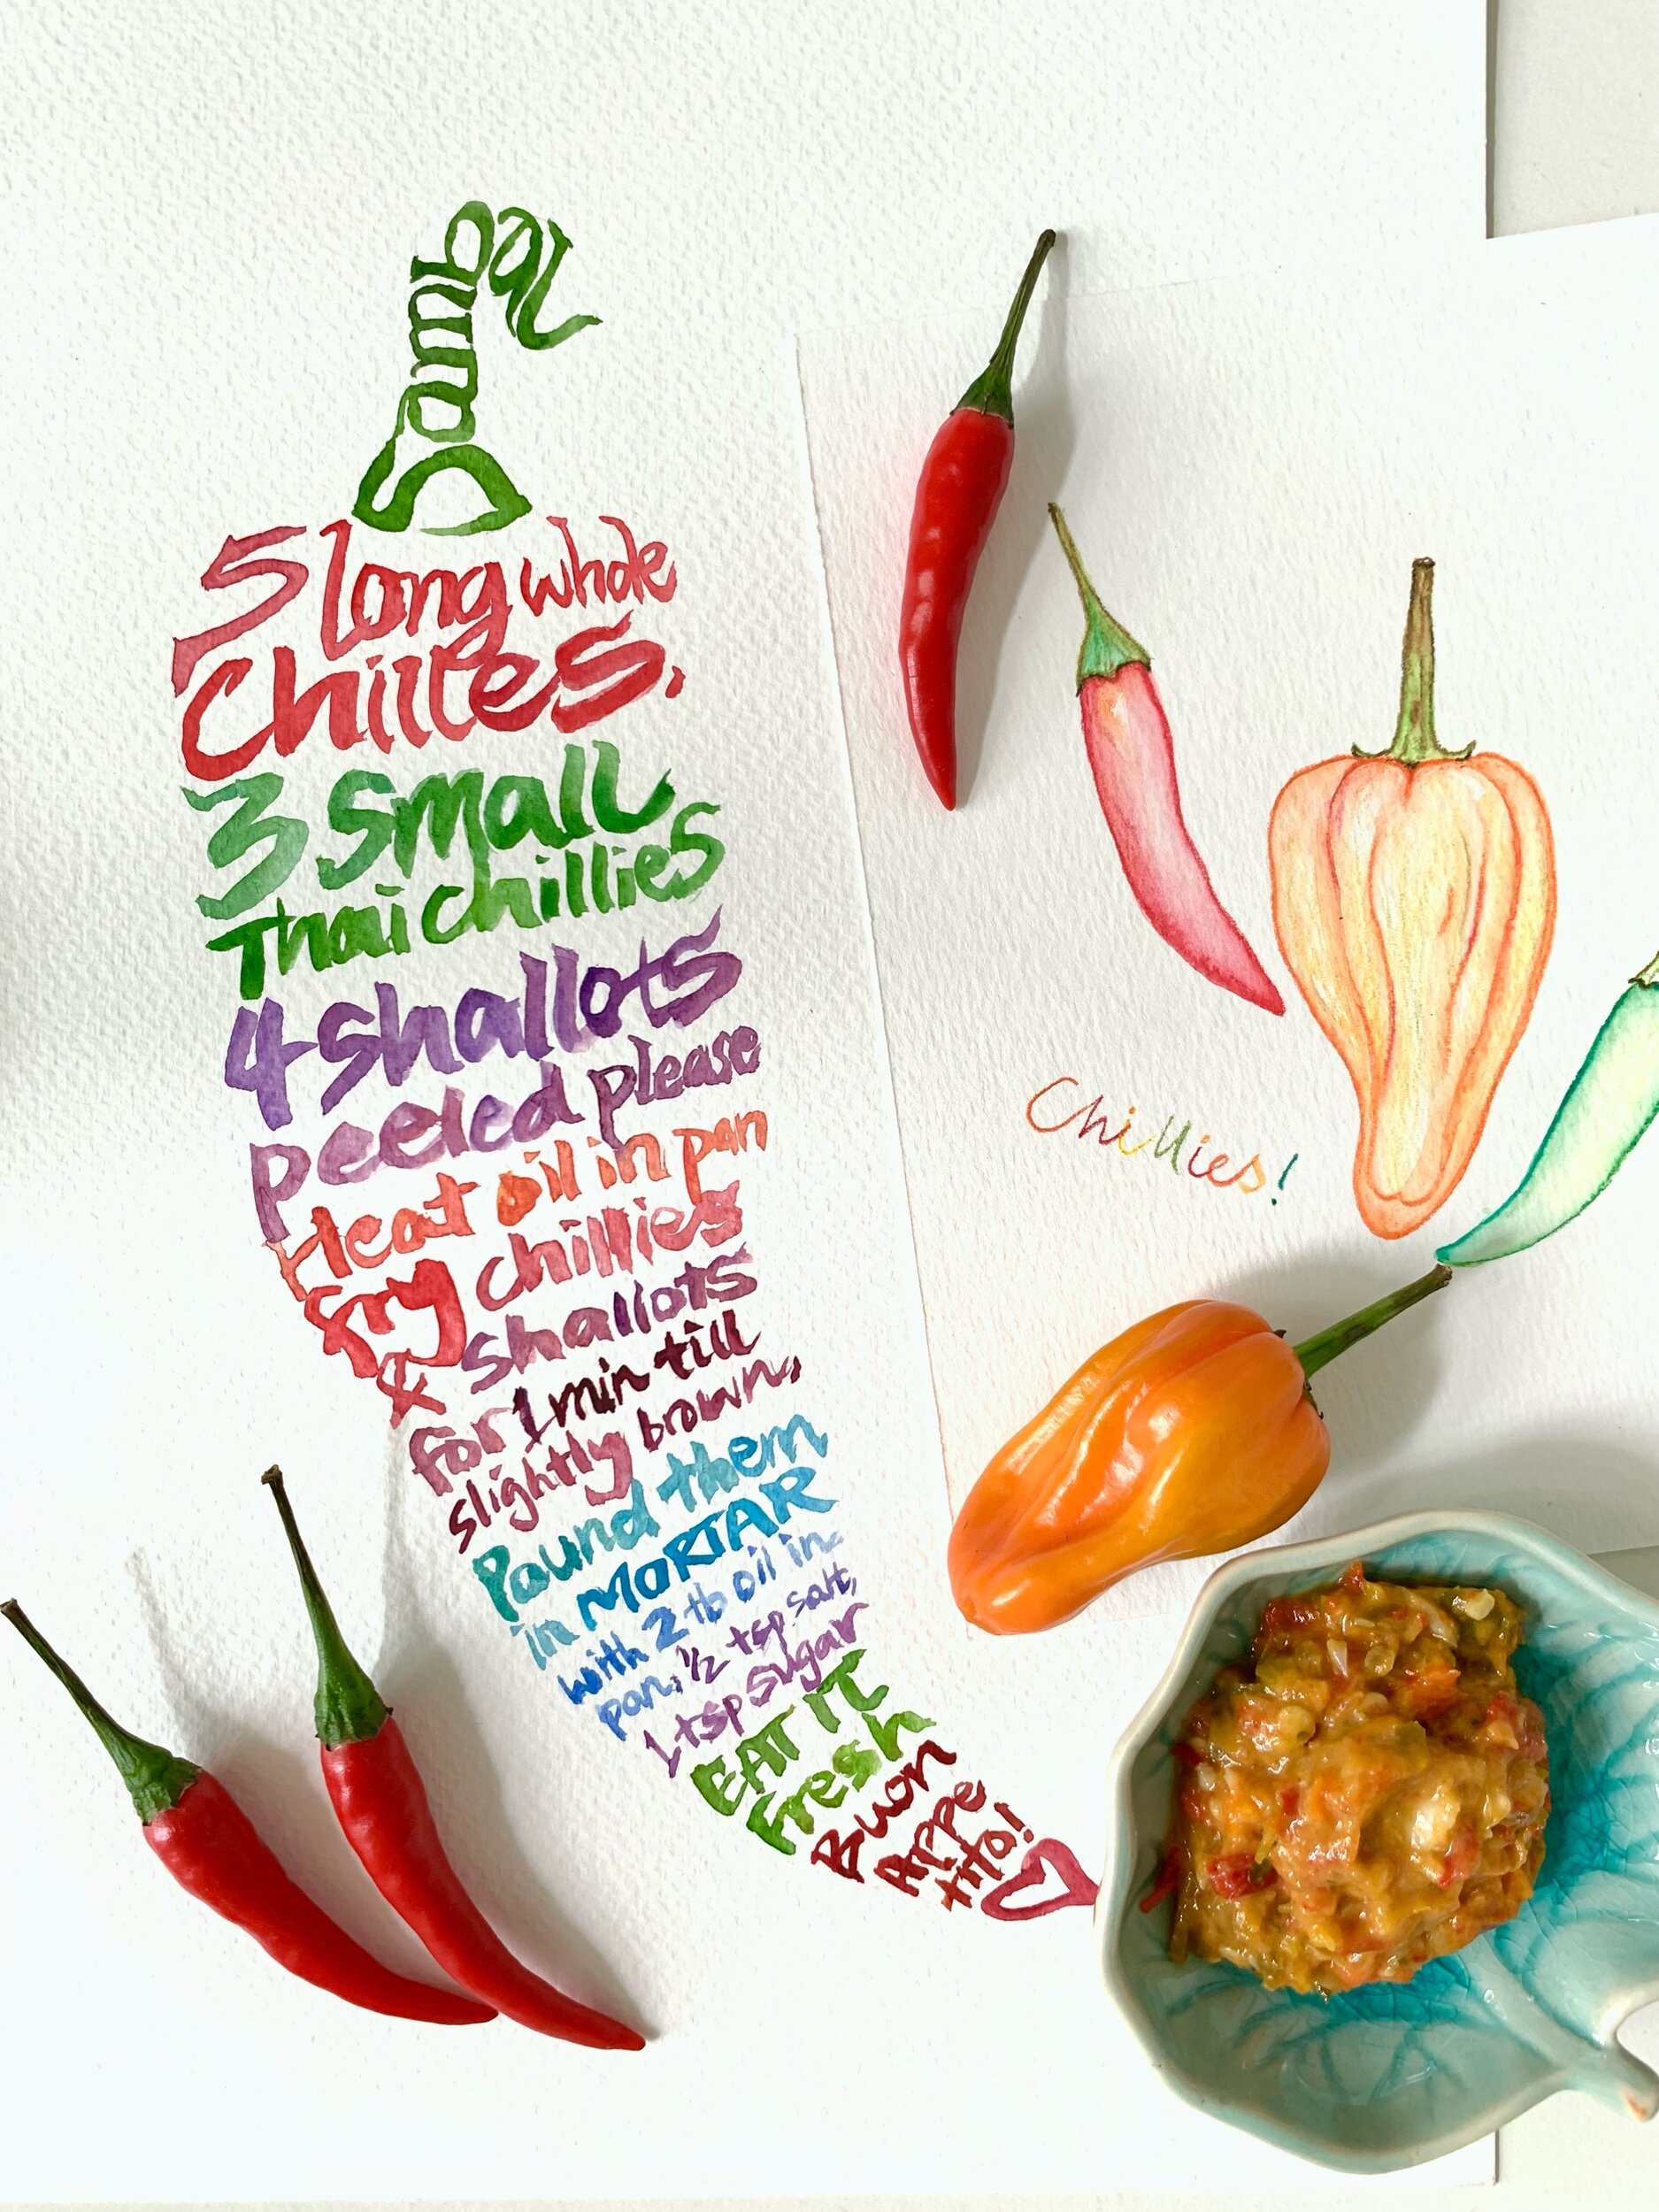 Sambal
5 long whole
Chillies.
3 small
Thai chillies
4 shallots
peeled please
Heat oil in pan
fry chillies
& shallots
for 1 min till
slightly brown,
Pound them
in MORTAR
with 2 tb oil in
pan, 1/2 tsp salt,
1 tsp sugar
EAT IT
Fresh
Buon
APPe
tito!
Chillies!